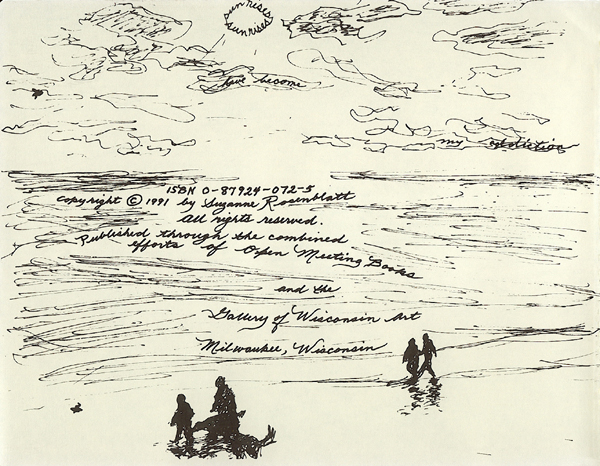 sunrises
sunrises
have become
my addiction
ISBN 0-87924-072-5
Copyright © 1991 by Suzanne Rosenblatt
All rights reserved.
Published through the combined
efforts of Open Meeting Books
and the
Gallery of Wisconsin Art
Milwaukee, Wisconsin